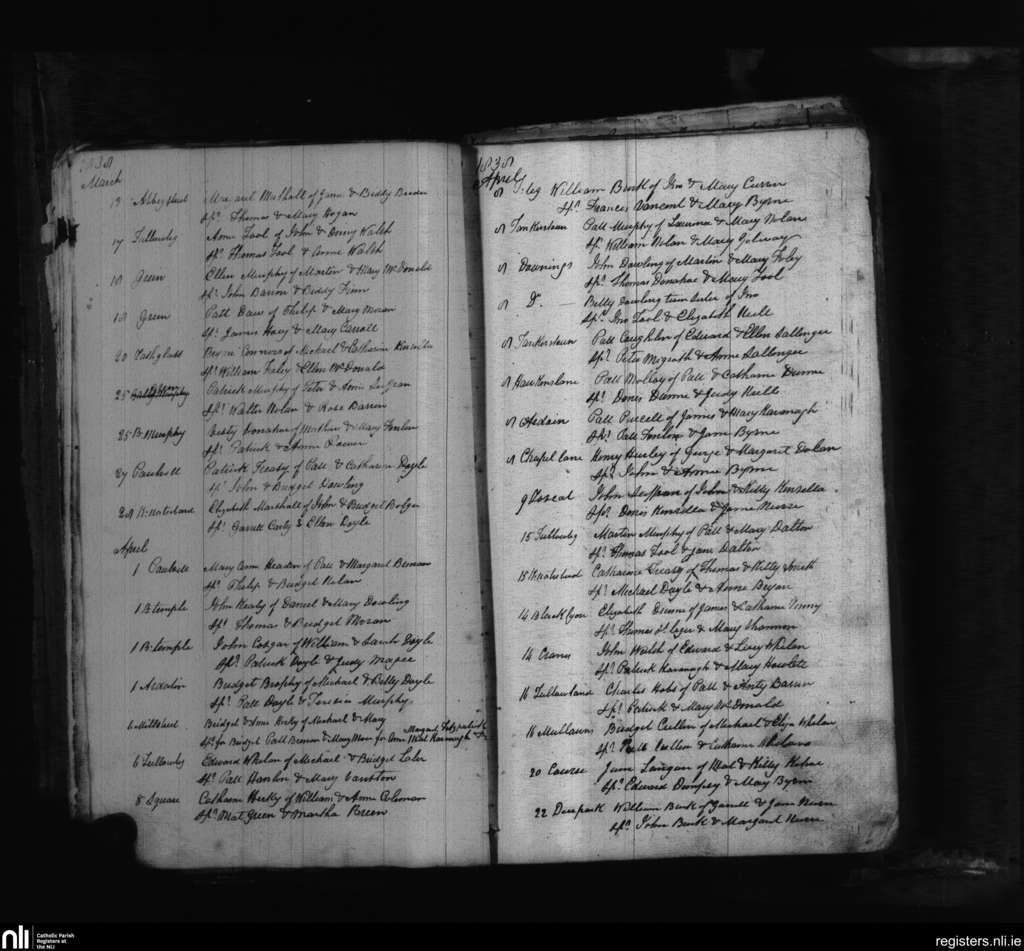 1838
March
13 Abbey street Margaret Marshall of James & Biddy
Sps Thomas & Mary Hogan
17 Tullowbeg Anne Tool of John & Denny Walsh
Sps Thomas Tool & Anne Walsh
18 Green Ellen Murphy of Martin & Mary McDonald
Sps John Barron & Biddy Finn
18 Green Patt of Philip & Mary Moran
Sps James Hoey & Mary Carroll
20 Rathglass of Michael & Catharine
Sps William Faley & Ellen McDonald
25 Patrick Murphy of Peter & Annie
Sps Walter Nolan & Rose Darcen
25 B. Murphy Betsy Donahoe of Mathew & Mary Fenlon
Sps Patrick & Anne
27 Paulvill Patrick Treacy of Patt & Catharine Doyle
Sps John & Bridget Dowling
28 Knaterland Elizabeth Marshall of John & Bridget Bolger
Sps Garrett Carty & Ellen Doyle
April
1 Paulvill Mary Ann Headon of Patt & Margaret Brennan
Sps Philip & Bridget Nolan
1 B. temple John Healy of Daniel & Mary Dowling
Sps Thomas & Bridget Moran
1 B. temple John Codgar of William & Sarah Doyle
Sps Patrick Doyle & Judy Magee
1 Ardoelin Bridget Brophy of Michael & Betty Doyle
Sps Patt Doyle & Teresia Murphy
6 Mill Street Bridget & Anne of Michael & Mary
Sps for Bridget Patt Brennan & Mary for Anne Michl Kavanagh & Margaret Fitzpatrick
6 Tullowbeg Edward Whelan of Michael & Bridget Lalor
Sps Patt Hanlon & Mary
8 Square Catharine of William & Anne Coleman
Sps Mat Green & Martha
1838
April
8 William Burk of Jno & Mary Curran
Sps Frances Vancent & Mary Byrne
8 Tankersteen Patt Murphy of Laurence & Mary Nolan
Sps William Nolan & Mary Galway
8 Downings John Dowling of Martin & Mary Foley
Sps Thomas Donahoe & Mary Tool
8 Do. Betty Dowling twin sister of Jno
Sps Jno Tool & Elizabeth Neill
8 Tankersteen Patt Coughlin of Edward & Ellen Sallenger
Sps Peter Mcgrath & Anne Sallenger
8 Hawkinslane Patt Molloy of Patt & Catharine Dunne
Sps Denis Dunne & Judy Neill
8 Patt Purcell of James & Mary Kavanagh
Sps Patt Fenlon & Jane Byrne
8 Chapel lane Henry Hurley of George & Margaret Dolan
Sps John & Annie Byrne
9 John of John & Kitty Kinsella
Sps Denis Kinsella & Jane
15 Tullowbeg Martin Murphy of Patt & Mary Dalton
Sps Thomas Tool & Jane Dalton
15 Knatestud Catharine Treacy of Thomas & Kitty Smith
Sps Michael Doyle & Anne Bryan
14 Black lyon Elizabeth Dunne of James & Catharine
Sps Thomas St Leger & Mary Shannon
14 Crans John Walsh of Edward & Lucy Whelan
Sps Patrick Kavanagh & Mary Howlett
16 Tullowland Charles of Patt & Anty Darcen
Sps Patrick & Mary McDonald
16 Mullawns Bridget Cullen of Michael & Eliza Whelan
Sps Patt Cullen & Catharine Whelan
20 Course Jane of Mat & Kitty
Sps Edward Dempsey & Mary Byrne
22 Deerpark William Burk of Garrett & Jane
Sps John Burk & Margaret
nli
Catholic Parish
Registers at
the NLI
registers.nli.ie